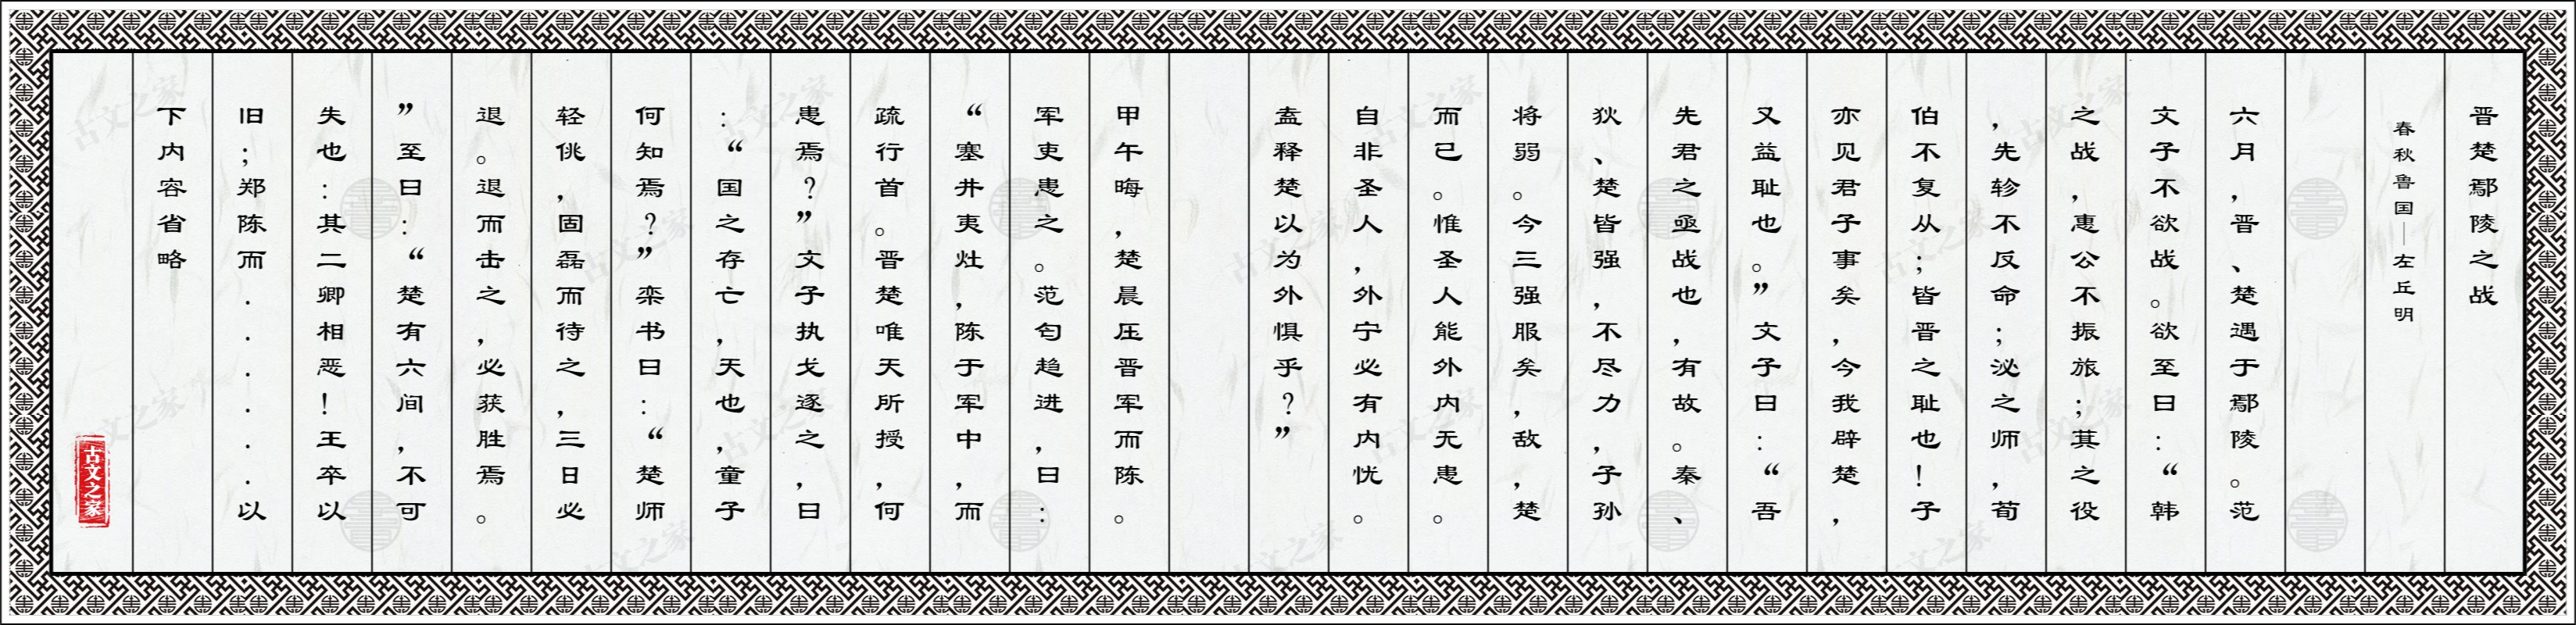 晋楚鄢陵之战
春秋鲁国—左丘明
六月，晋、楚遇于鄢陵。范
文子不欲战。欲至曰：“韩
之战，惠公不振旅；萁之役
，先轸不反命；泌之师，荀
伯不复从；皆晋之耻也！子
亦见君子事矣，今我辟楚，
又益耻也。”文子曰：“吾
先君之亟战也，有故。秦、
狄、楚皆强，不尽力，子孙
将弱。今三强服矣，敌，楚
而已。惟圣人能外内无患。
自非圣人，外宁必有内忧。
盍释楚以为外惧乎？”
甲午晦，楚晨压晋军而陈。
军吏患之。范匄趋进，曰：
“塞井夷灶，陈于军中，而
疏行首。晋楚唯天所授，何
患焉？”文子执戈逐之，曰
：“国之存亡，天也，童子
何知焉？”栾书曰：“楚师
轻佻，固磊而待之，三日必
退。退而击之，必获胜焉。
”至曰：“楚有六间，不可
失也：其二卿相恶！王卒以
旧；郑陈而......以
下内容省略
古文之家